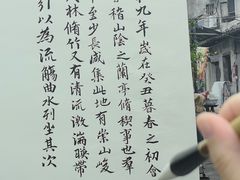 九年歲在癸丑暮春之初會
稽山陰之蘭亭脩禊事也群
至少長咸集此地有崇山峻
林脩竹又有清流激湍映帶
引以為流觴曲水列坐其次